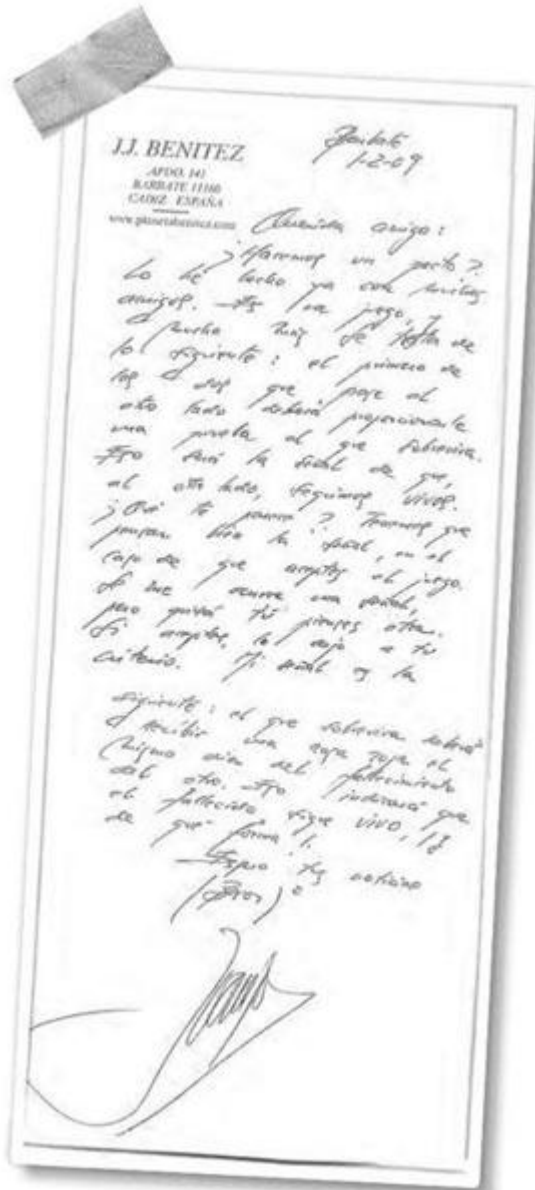 J.J. BENITEZ
APDO. 141
BARBATE 11160
CADIZ · ESPAÑA
www.planetabenitez.com
Barbate
1-2-09
Querida amiga:
¿Hacemos un pacto?
Lo he hecho ya con muchos
amigos. Es un juego, y
mucho más. Se trata de
lo siguiente: el primero de
los dos que pase al
otro lado deberá proporcionarle
una prueba al que sobreviva.
Eso será la señal de que,
al otro lado, seguimos vivos.
¿Qué te parece? Tenemos que
pensar bien la señal, en el
caso de que aceptes el juego.
Se me ocurre una señal,
pero quizá tú pienses otra.
Si aceptas, lo dejo a tu
criterio. Mi señal es la
siguiente: el que sobreviva deberá
recibir una rosa roja el
mismo día del fallecimiento
del otro. Eso indicará que
el fallecido sigue vivo, ¡y
de qué forma!.
Espero tus noticias